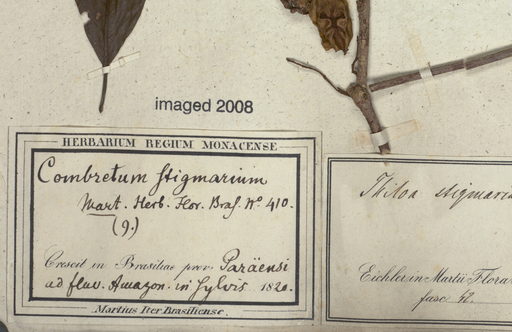 imaged 2008
HERBARIUM REGIUM MONACENSE
Combretum stigmarium
Mart. Herb. Flor. Bras. No. 410.
(9.)
Crescit in Brasiliae prov. Paraënsi
ad fluv. Amazon. in Sylvis 1820.
Martius Iter Brasiliense.
Thiloa stigmaria
Eichler in Martii Flora
fasc